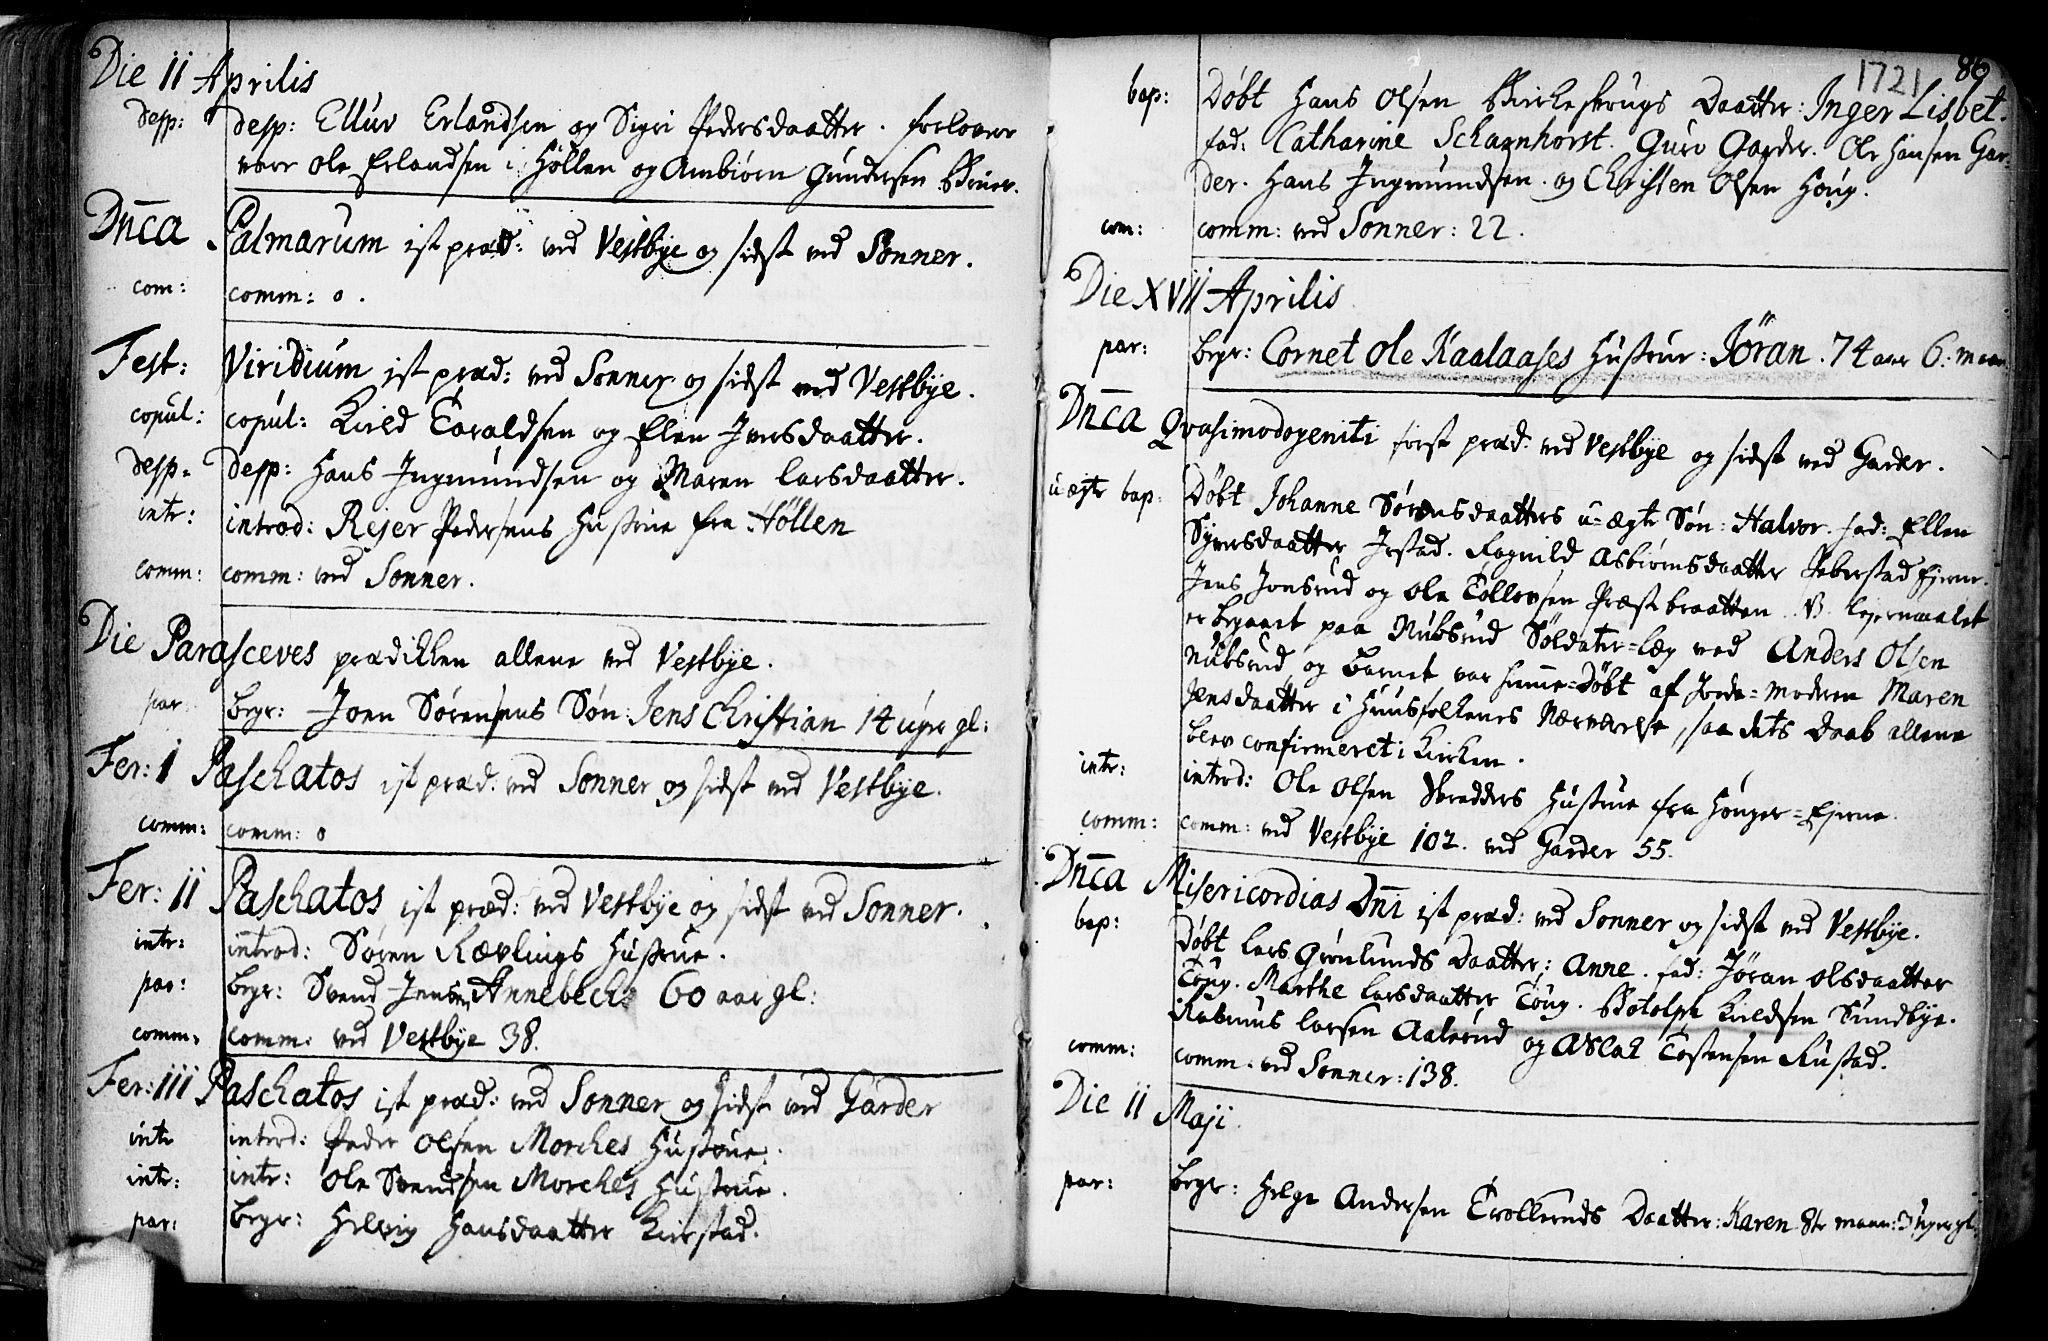 Die 11 Aprilis
desp: desp: Elluv Erlandsen og Sigri Pedersdaatter. forlover
vare Ole Erlandsen i Höllen og Ambiörn Gundersen
Dnca Palmarum ist præd: ved Vestbye og sidst ved Sonner.
com: comm: 0.
Fest: Viridium ist præd: ved Sonner og sidst ved Vestbye.
copul: copul: Kield Taraldsen og Elen Iversdaatter.
desp: desp: Hans Ingmundsen og Maren Larsdaatter.
intr: introd: Rejer Pedersens Hustrue fra Höllen
comm: comm: ved Sonner.
Die Parasceves prædikken allene ved Vestbye.
par: begr: Joen Sörensens Sön: Jens Christian 14 uger gl:
Fer: I Paschatos ist præd: ved Sonner og sidst ved Vestbye.
comm: comm: 0
Fer: II Paschatos ist præd: ved Vestbye og sidst ved Sonner.
intr: introd: Sören Rævlings Hustrue.
par: begr: Svend Jensen Annebechs 60 aar gl:
comm: comm: ved Vestbye 38.
Fer: III Paschatos ist præd: ved Sonner og sidst ved Garder
intr introd: Peder Olsen Morches Hustrue.
intr: intr: Ole Svendsen Morches Hustrue.
par: begr: Helvig Hansdaatter Kirstad.
1721 86
bap: Döbt Hans Olsen Daatter: Inger Lisbet.
fad: Catharine Scharnhorst. Guro Garder. Ole Hansen Gar-
der. Hans Ingmundsen. og Christen Olsen Houg.
com: comm: ved Sonner: 22.
Die XVII Aprilis
par: begr: Cornet Ole Kaalaases Hustrue: Jöran. 74 aar 6. maan
Dnca Qvasimodogeniti först præd: ved Vestbye og sidst ved Garder.
u-ægte bap: Döbt Johanne Sörensdaatters u-ægte Sön: Halvor. fad: Ellen
Syversdaatter Irstad. Ragnild Asbiörnsdaatter
Jens Jonsrud og Ole Tollovsen Præstbraatten. NB. Lejermaalet
er begaaet paa Nubsrud Soldater-læg ved Anders Olsen
Nubsrud og Barnet var hiemme-Döbt af Jorde-moderen Maren
Jensdaatter i Huusfolkenes Nærværelse, saa dets Daab allene
blev confirmeret i Kirken.
intr: introd: Ole Olsen Skredders Hustrue fra
comm: comm: ved Vestbye 102. ved Garder 55.
Dnca Misericordias Dni ist præd: ved Sonner og sidst ved Vestbye.
bap: Döbt Lars Grönlunds Daatter: Anne. fad: Jöran Olsdaatter
Toug. Marthe Larsdaatter Toug. Botolph Kieldsen Sundbye.
Rasmus Larsen Aalerud og Aslak Tostensen Rustad.
comm: comm: ved Sonner: 138.
Die 11 Maji
par: begr: Helge Andersen Trolleruds Daatter: Karen 8te maan: 3 uger gl: